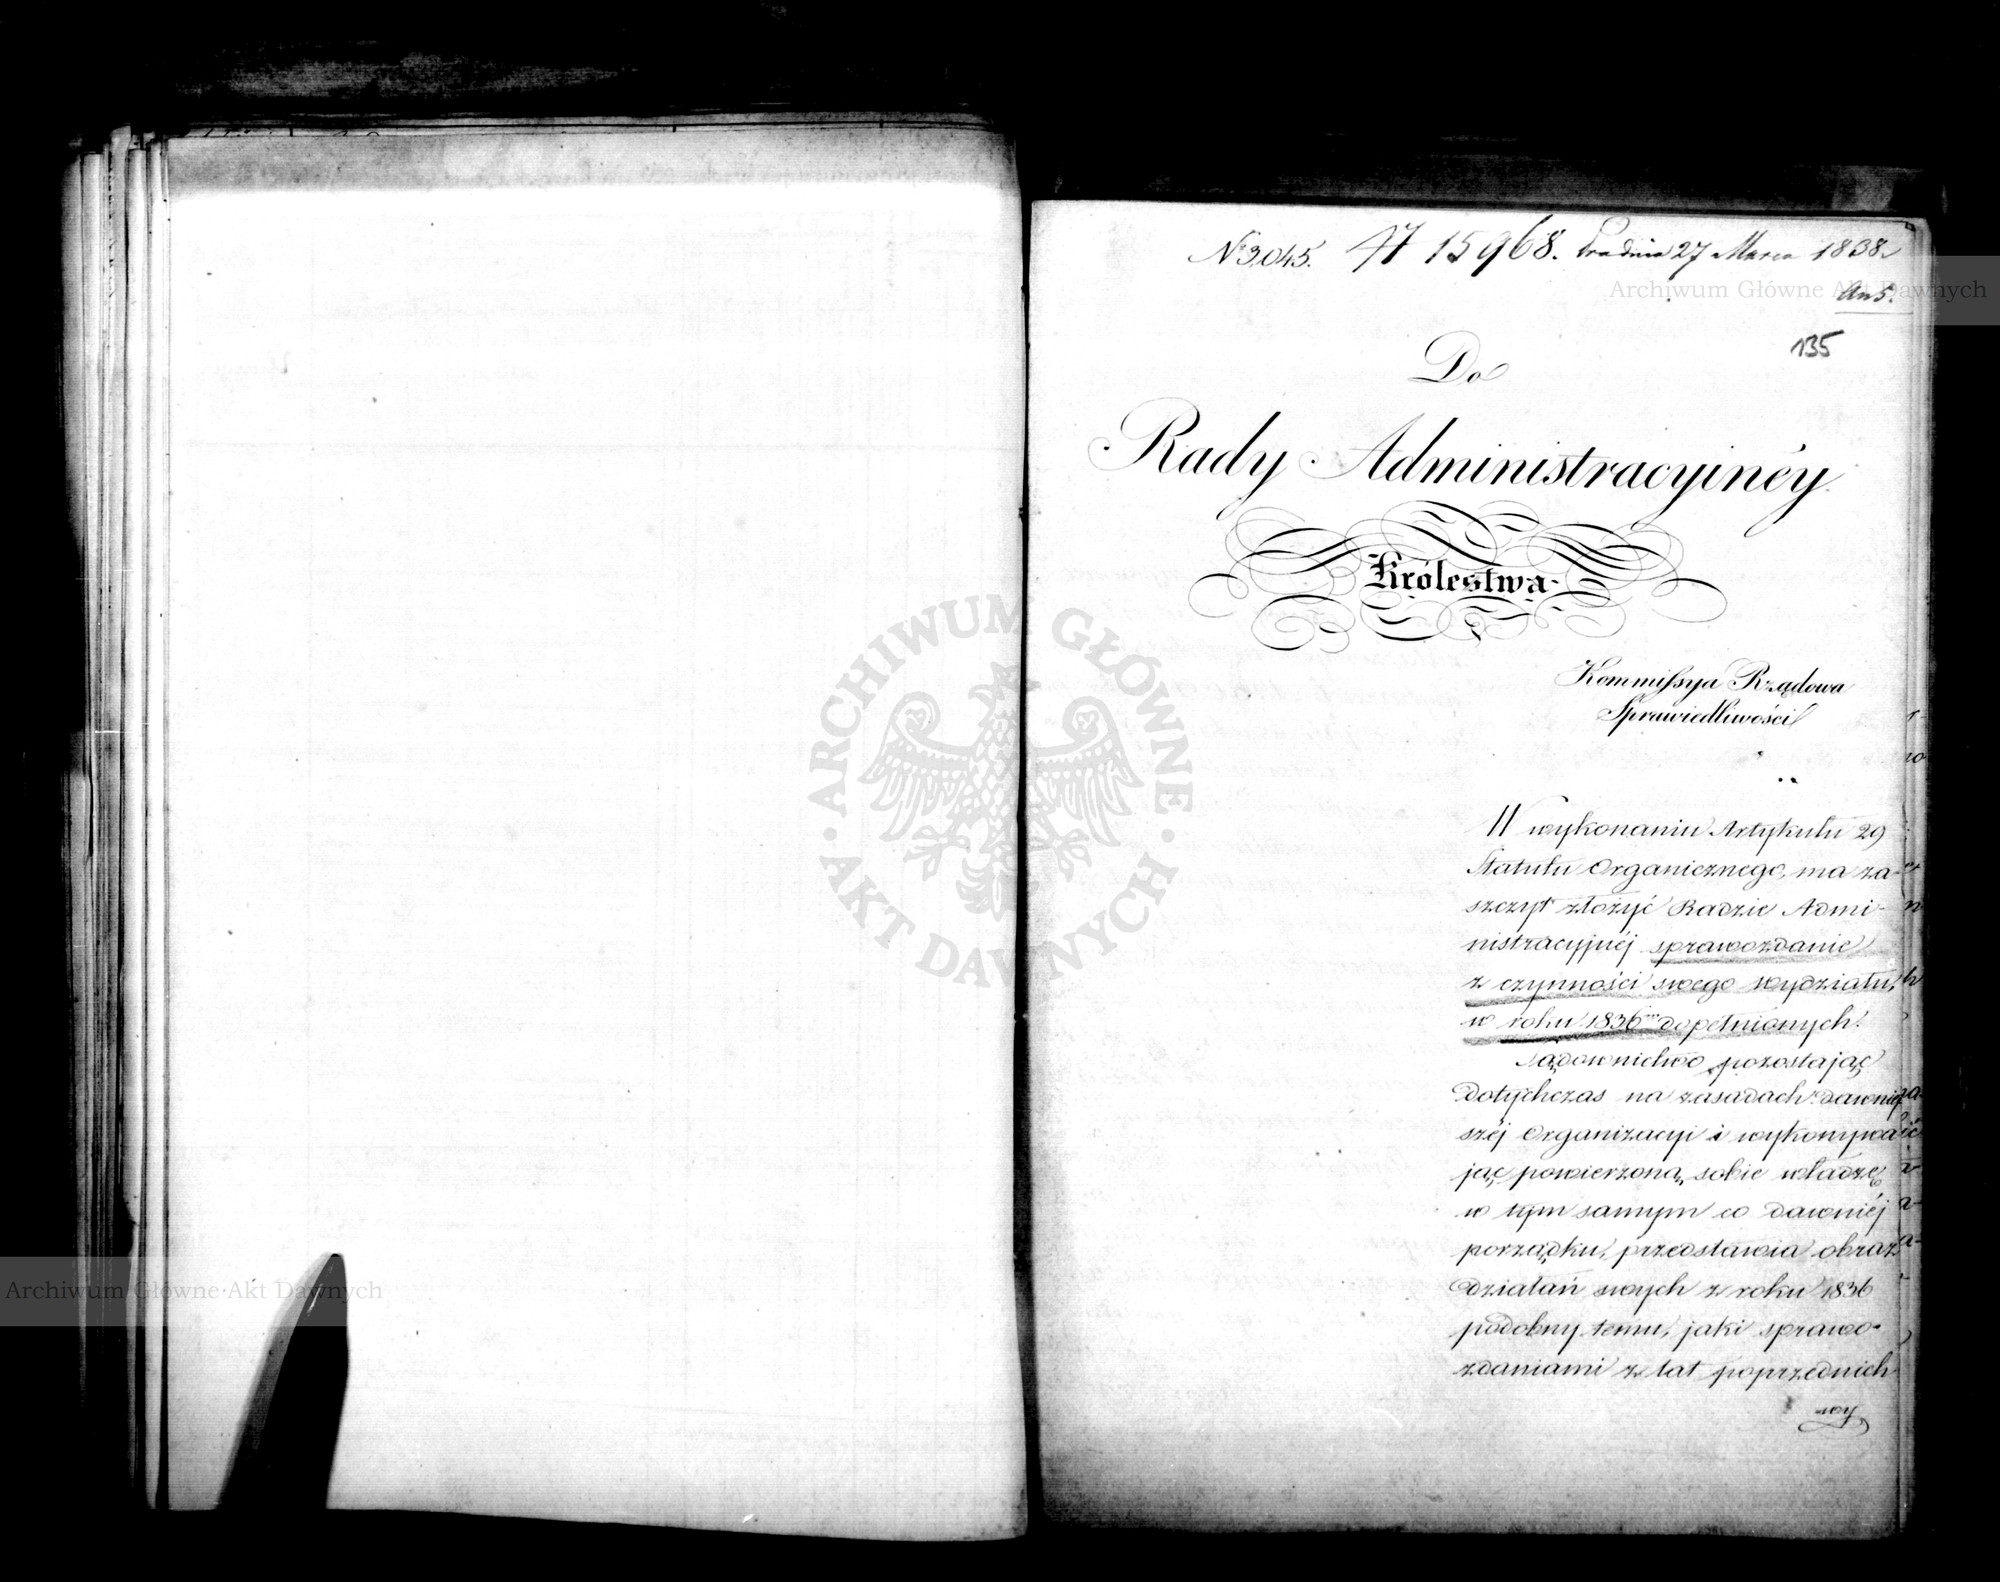 No 3,045. 15968. 27 Marca 1838.
135
Do
Rady Administracyinéy
Królestwa
Kommissya Rządowa
Sprawiedliwości
W wykonaniu Artykułu 29
Statutu Organicznego, ma za-
szczyt złożyć Radzie Admi-
nistracyjnéj sprawozdanie
z czynności swego wydziału,
w roku 1836m dopełnionych.
Sądownictwo pozostając
dotychczas na zasadach dawniej-
széj Organizacyi i wykonywa-
jąc powierzoną sobie władzę
w tym samym co dawniéj
porządku, przedstawia obraz
działań swych z roku 1836
podobny temu, jaki sprawo-
zdaniami z lat poprzednich
Archiwum Główne Akt Dawnych
ARCHIWUM GŁÓWNE · AKT DAWNYCH ·
Archiwum Główne Akt Dawnych